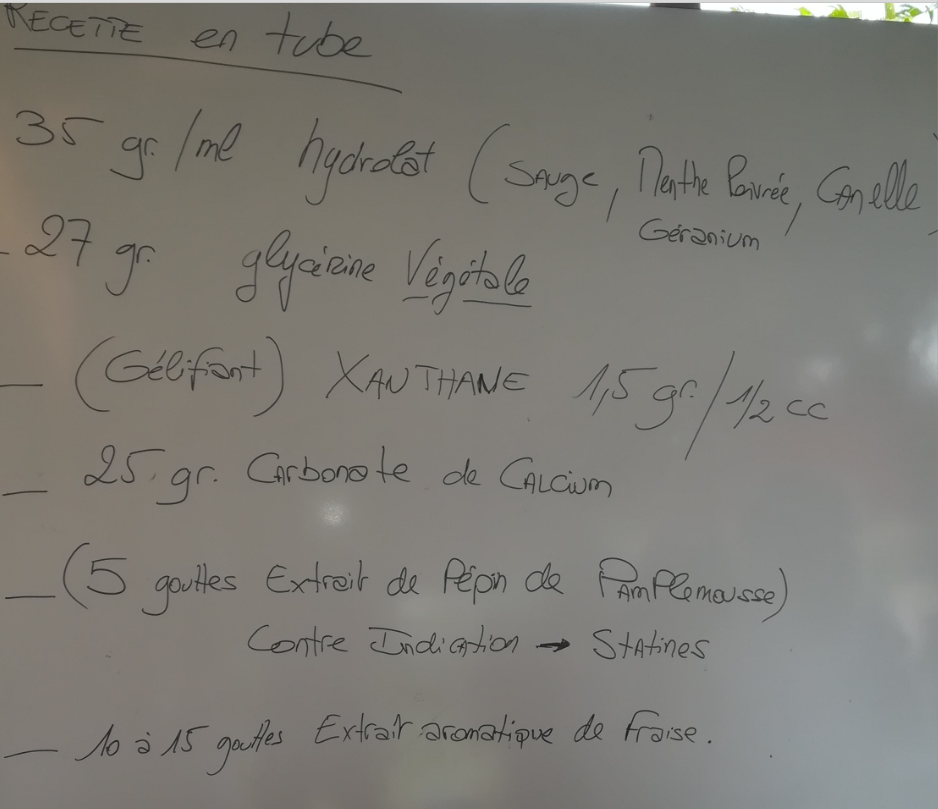 RECETTE en tube
35 gr./ml hydrolat (SAUGE, Menthe Poivrée, CANelle)
Géranium
- 27 gr. glycérine Végétale
— (Gélifiant) XANTHANE 1,5 gr./1/2 cc
— 25 gr. CArbonate de CALCium
— (5 gouttes Extrait de Pépin de PAMPlemousse)
Contre IndicAtion → StAtines
— 10 à 15 gouttes Extrait aromatique de Fraise.